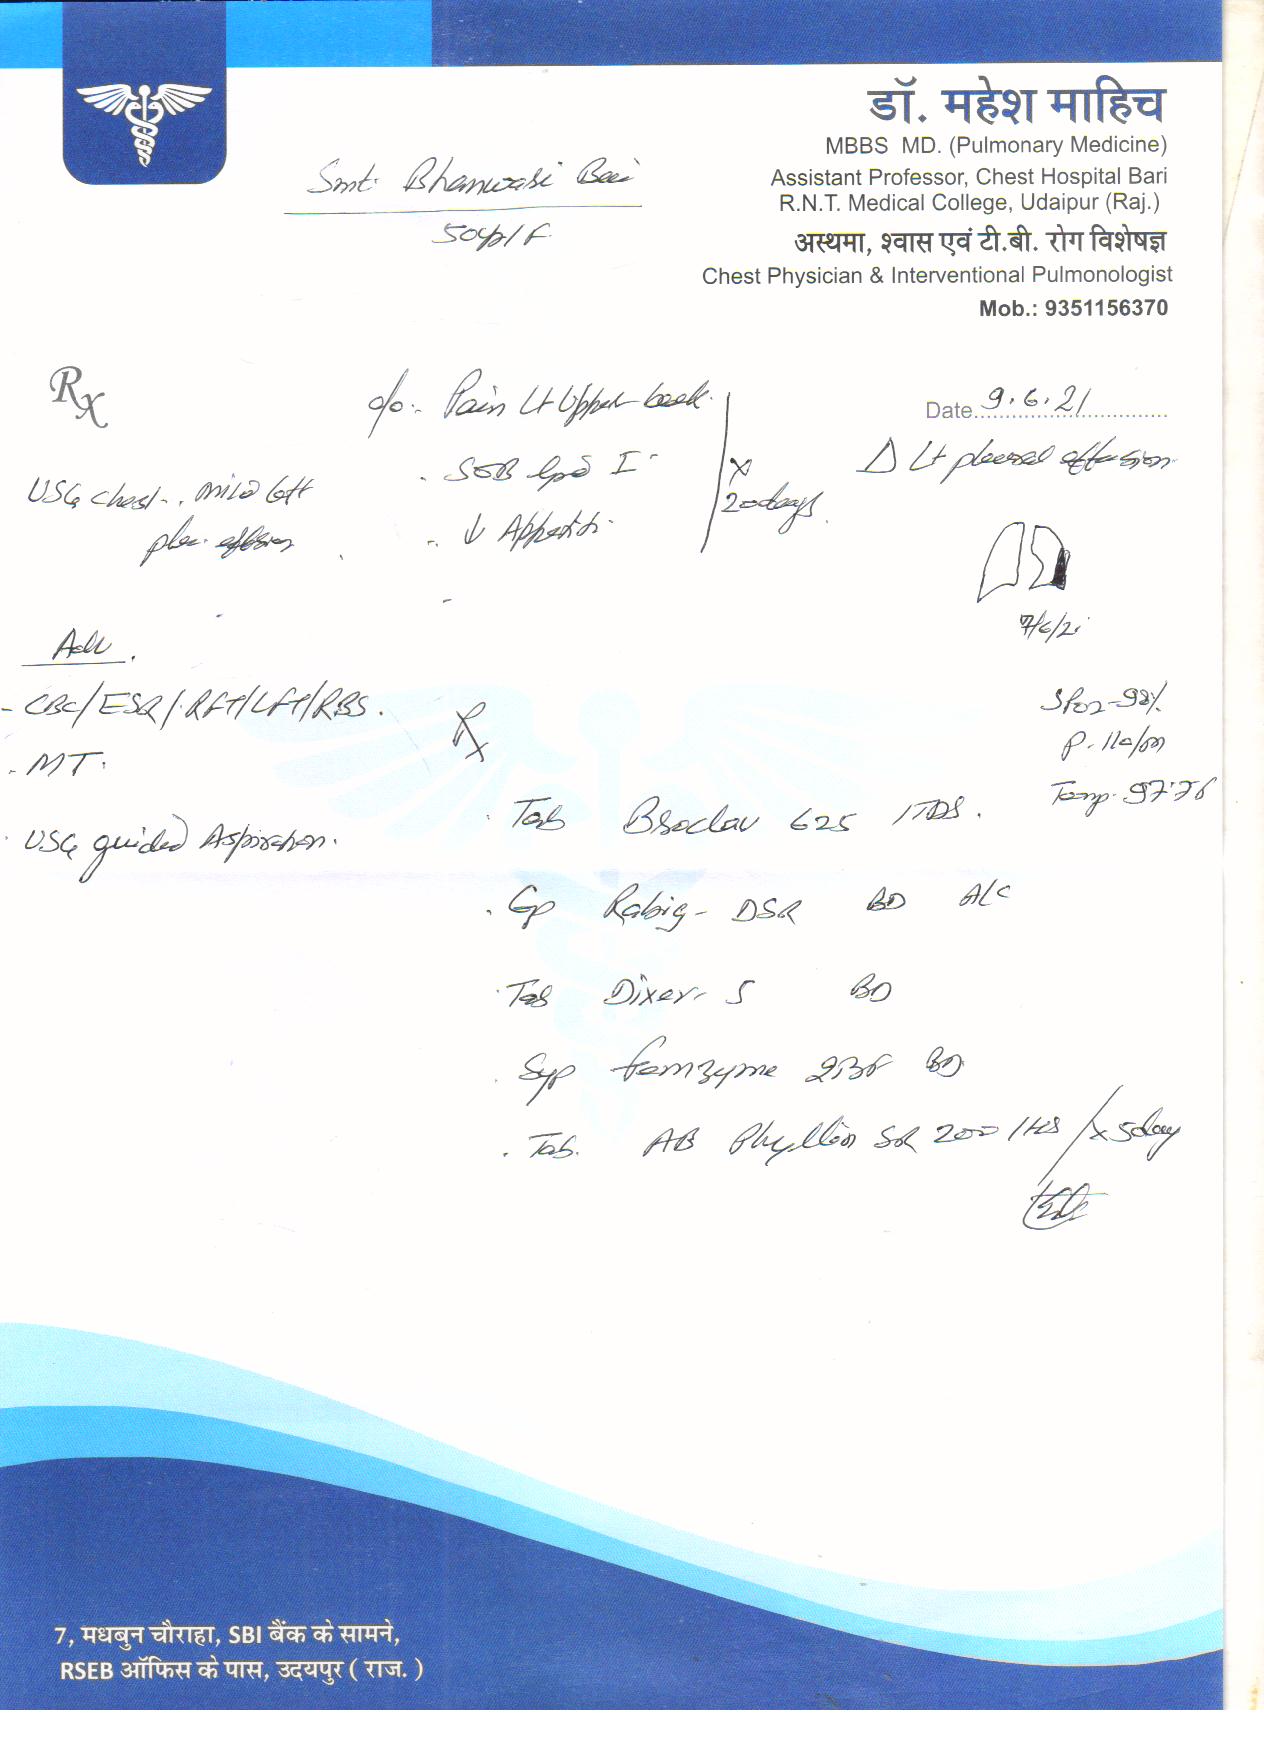 डॉ. महेश माहिच
MBBS MD. (Pulmonary Medicine)
Assistant Professor, Chest Hospital Bari
R.N.T. Medical College, Udaipur (Raj.)
अस्थमा, श्वास एवं टी.बी. रोग विशेषज्ञ
Chest Physician & Interventional Pulmonologist
Mob.: 9351156370
Smt. Bhanwari Bai
50y/F
Rx
Date 9.6.21
c/o - Pain Lt Upper back
SOB I
↓ Appetite
x 20 days
Δ Lt pleural effusion
7/6/21
USG chest - mild left
effusion
Adv
- CBC/ESR/RFT/LFT/RBS.
- MT.
USG guided Aspiration.
SpO2 - 98%
P - 110/m
Temp - 97.7
Rx
Tab Broclav 625 1TDS.
Cap DSR BD
Tab Dixer - S BD
Syp BD
Tab. AB Phyllin SR 200 1HS x 5day
7, मधुबन चौराहा, SBI बैंक के सामने,
RSEB ऑफिस के पास, उदयपुर ( राज. )